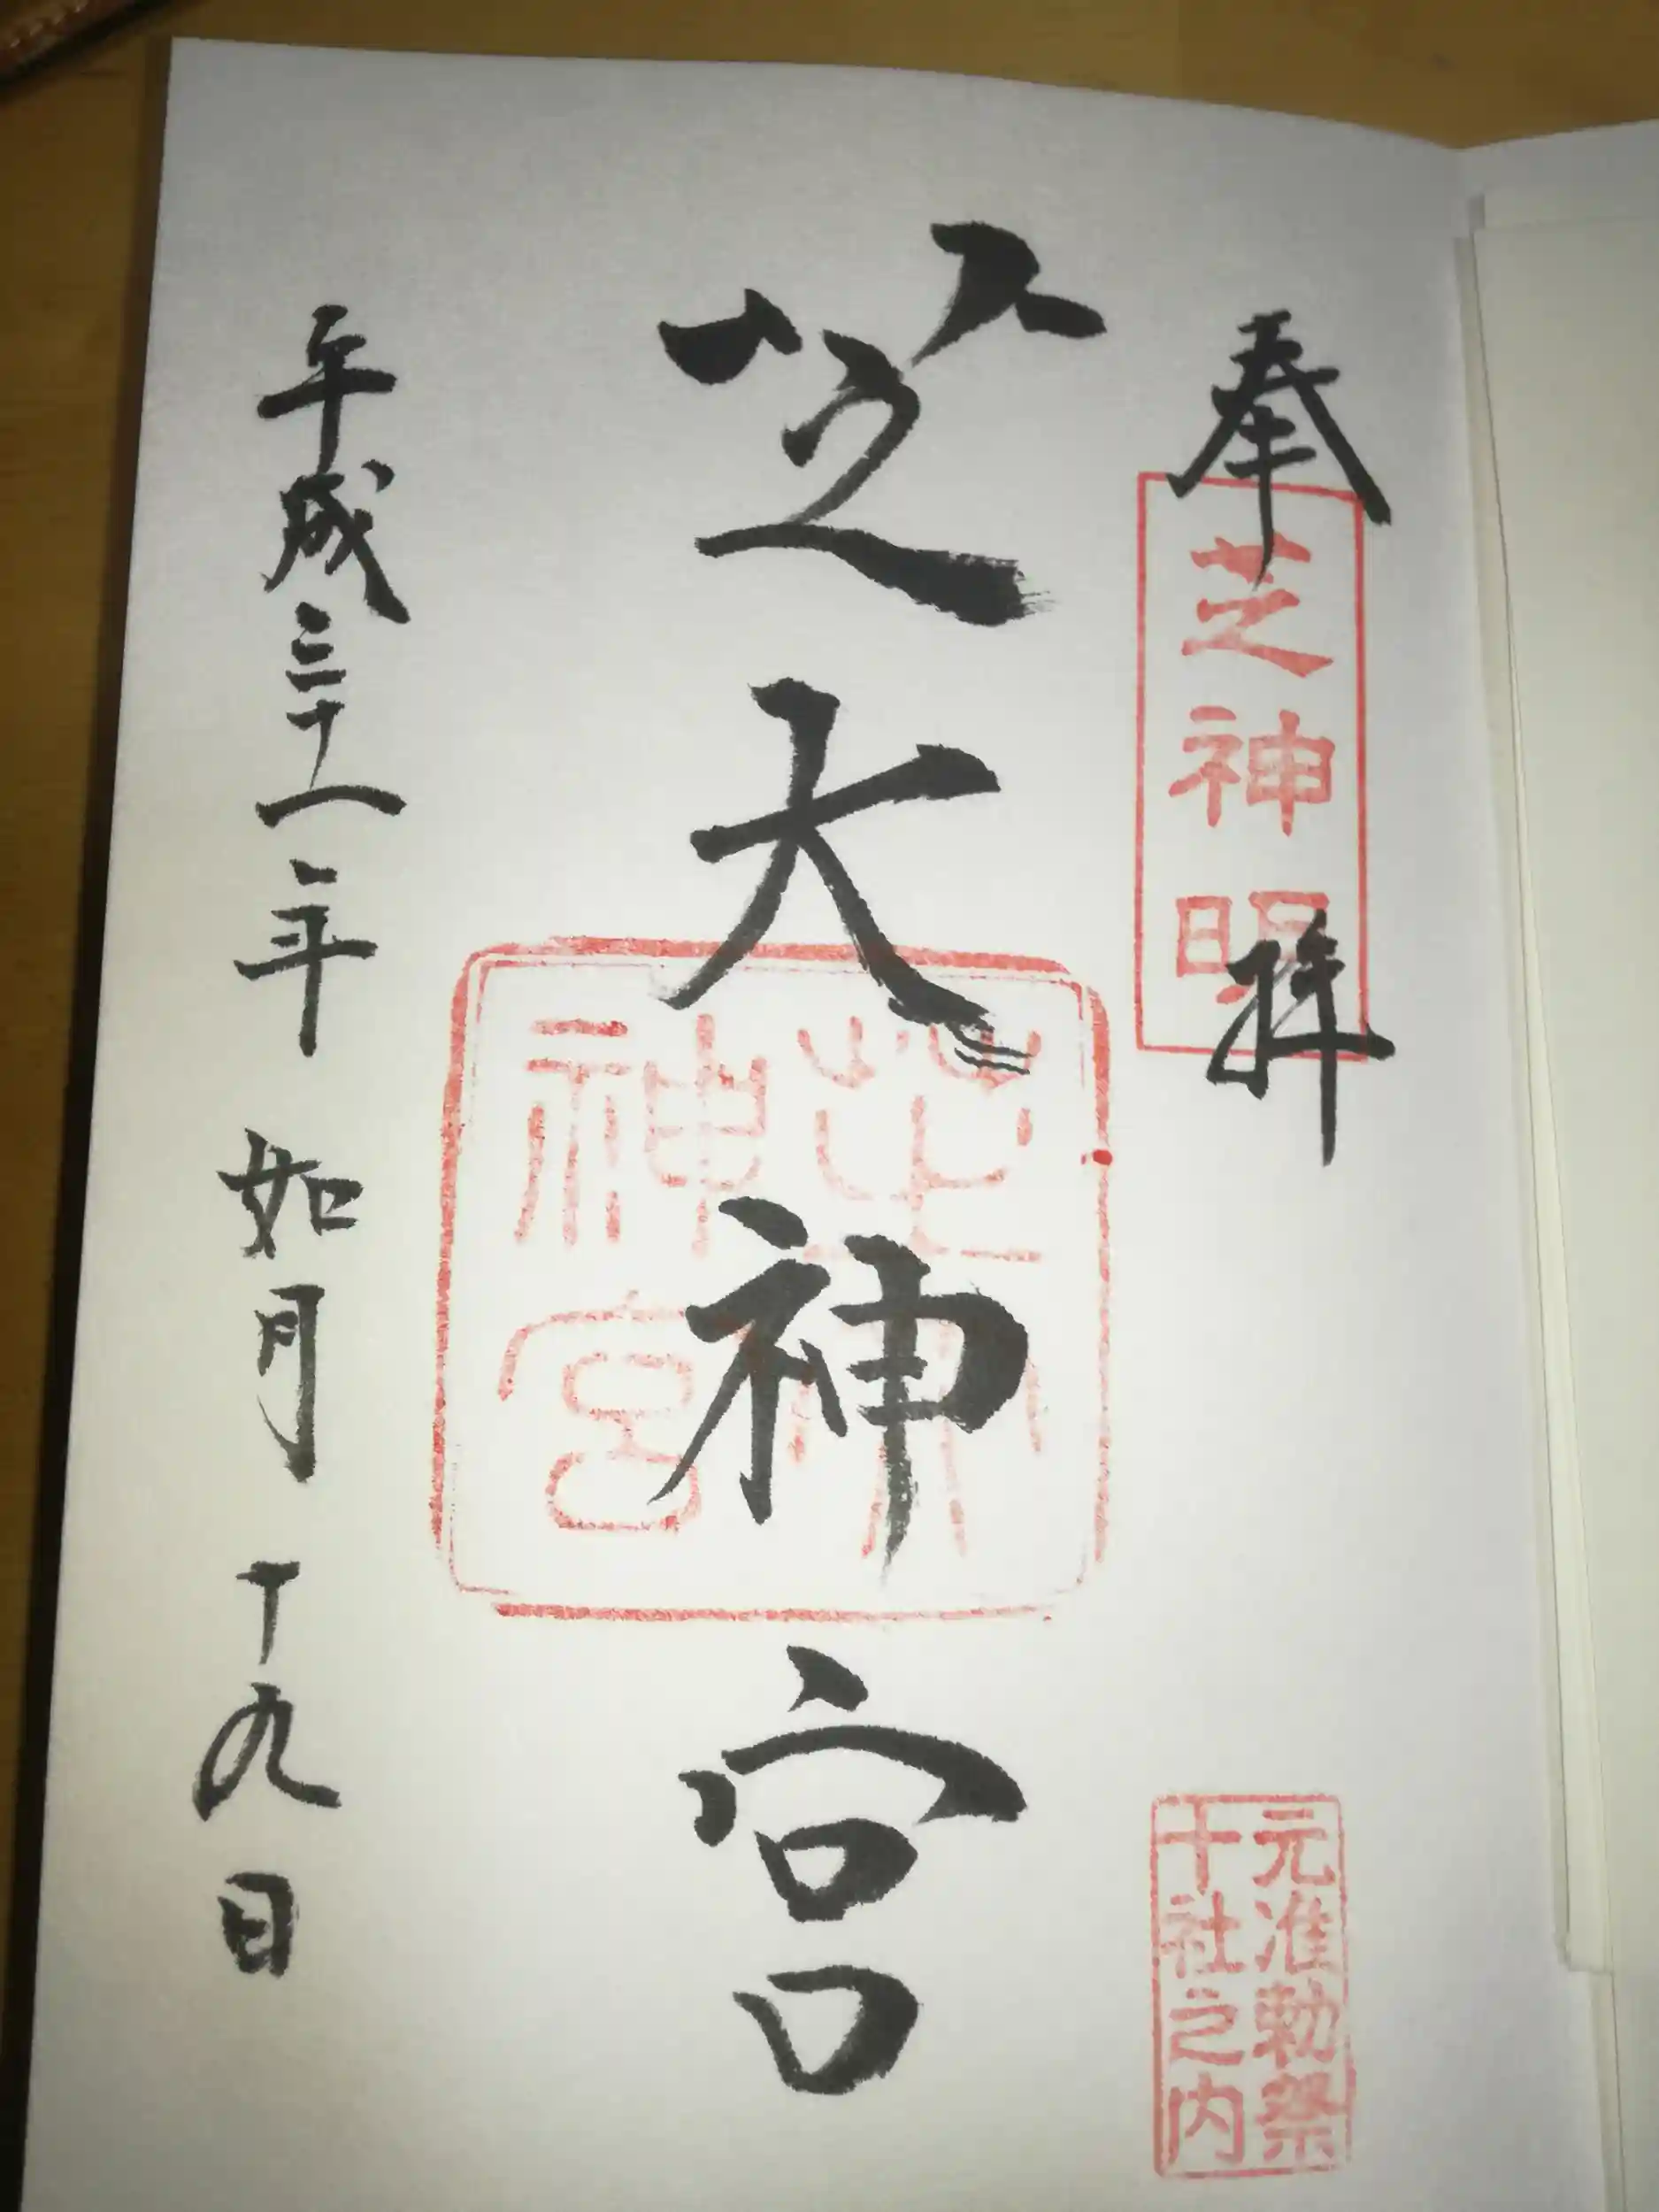 奉拝
芝神明
元准勅祭
十社之内
芝大神宮
芝大
神宮
平成三十一年 如月 十九日